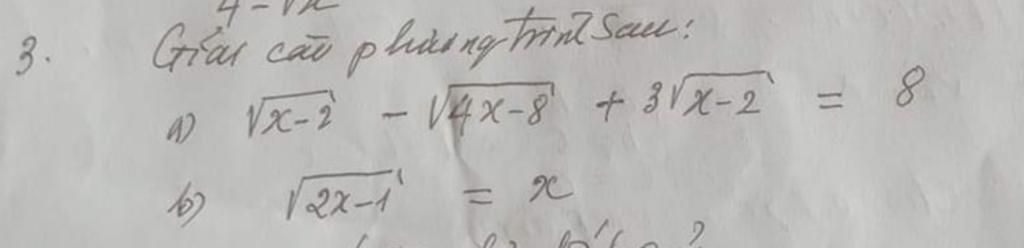 4-√x
3. Giải các phương trình sau:
a) √x-2 - √4x-8 + 3√x-2 = 8
b) √2x-1 = x